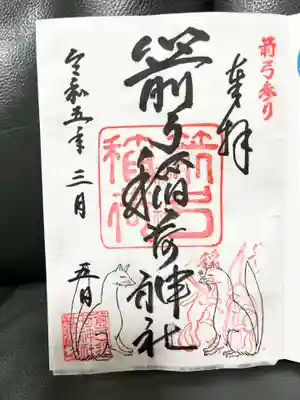 箭弓参り
奉拝
箭弓稲荷神社
箭弓稲荷
令和五年三月五日